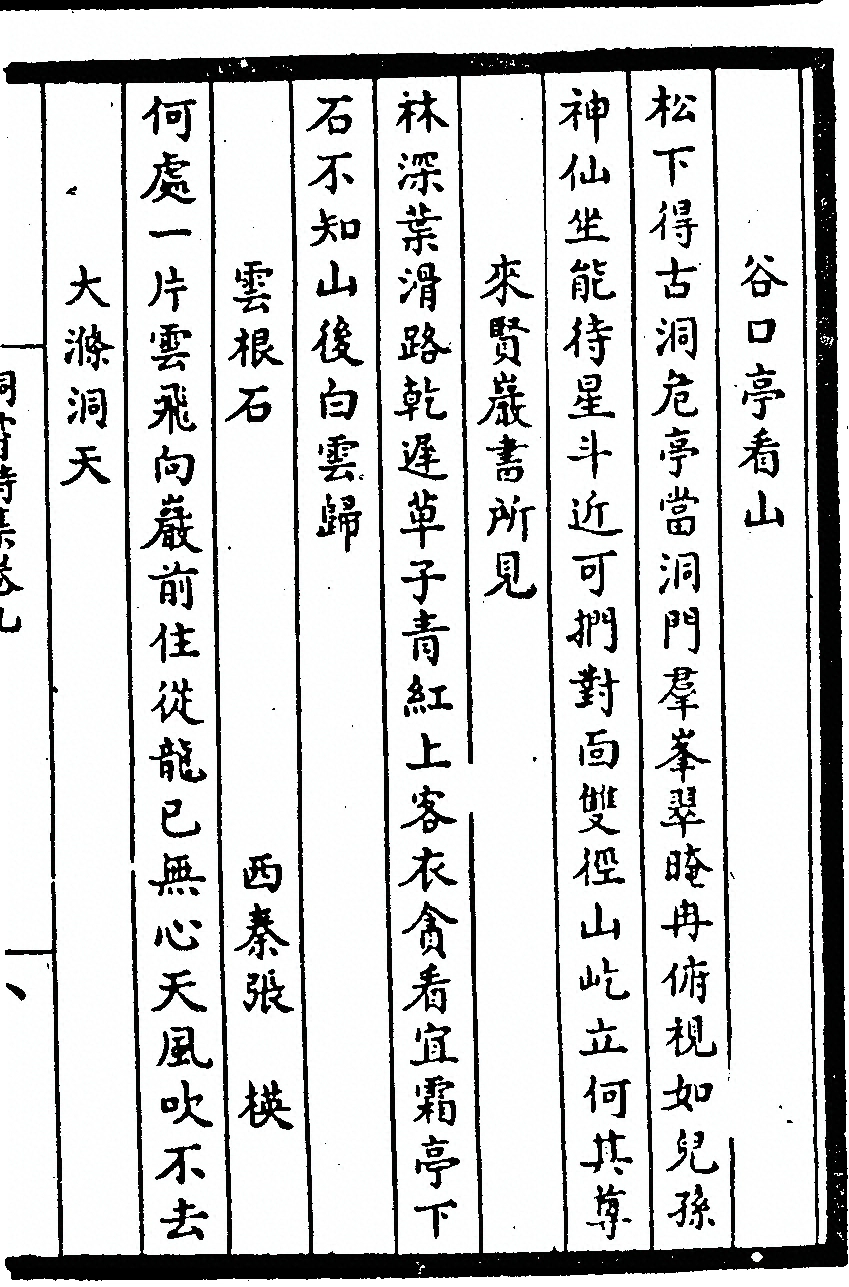 谷口亭看山
松下得古洞危亭當洞門羣峯翠晻冉俯視如兒孫
神仙坐能待星斗近可捫對面雙徑山屹立何其尊
來賢巖書所見
林深葉滑路乾遲草子青紅上客衣貪看宜霜亭下
石不知山後白雲歸
雲根石 西秦張 模
何處一片雲飛向巖前住從龍已無心天風吹不去
大滌洞天
洞霄詩集卷九